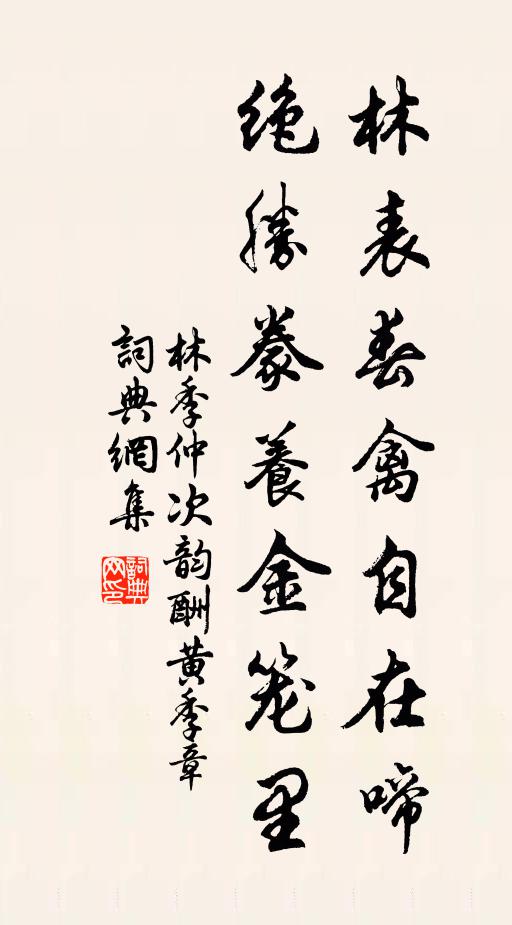 林表春禽自在啼
绝勝豢養金笼里
林季仲次韵酬黄季章
詞典網集
詞典网印